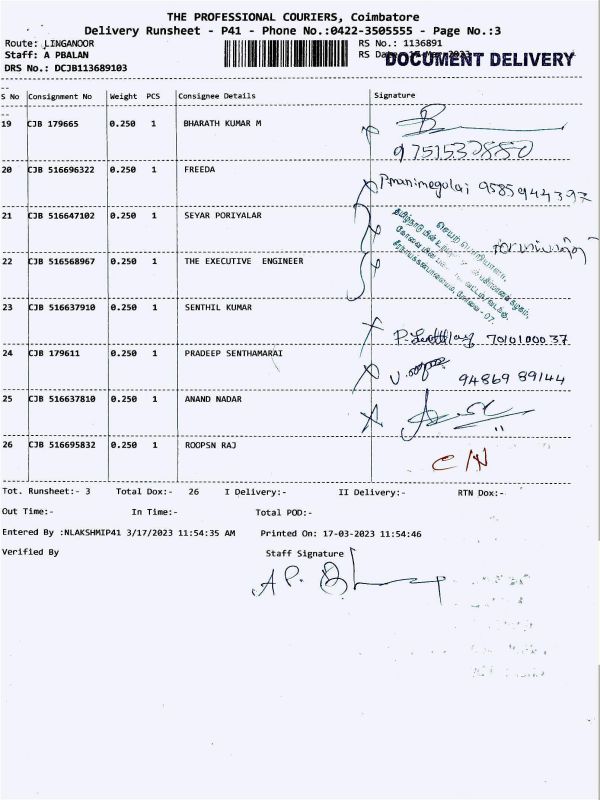 THE PROFESSIONAL COURIERS, Coimbatore
Delivery Runsheet - P41 - Phone No.:0422-3505555 - Page No.:3
Route: LINGANOOR RS No.: 1136891
Staff: A PBALAN RS Date: 17 Mar 2023 DOCUMENT DELIVERY
DRS No.: DCJB113689103
S No Consignment No Weight PCS Consignee Details Signature
19 CJB 179665 0.250 1 BHARATH KUMAR M
9751532850
20 CJB 516696322 0.250 1 FREEDA
P.manimegalai 9585944397
21 CJB 516647102 0.250 1 SEYAR PORIYALAR
செயற் பொறியாளர்,
22 CJB 516568967 0.250 1 THE EXECUTIVE ENGINEER
23 CJB 516637910 0.250 1 SENTHIL KUMAR
7010100037
24 CJB 179611 0.250 1 PRADEEP SENTHAMARAI
94869 89144
25 CJB 516637810 0.250 1 ANAND NADAR
26 CJB 516695832 0.250 1 ROOPSN RAJ
C/N
Tot. Runsheet:- 3 Total Dox:- 26 I Delivery:- II Delivery:- RTN Dox:-
Out Time:- In Time:- Total POD:-
Entered By :NLAKSHMIP41 3/17/2023 11:54:35 AM Printed On: 17-03-2023 11:54:46
Verified By Staff Signature